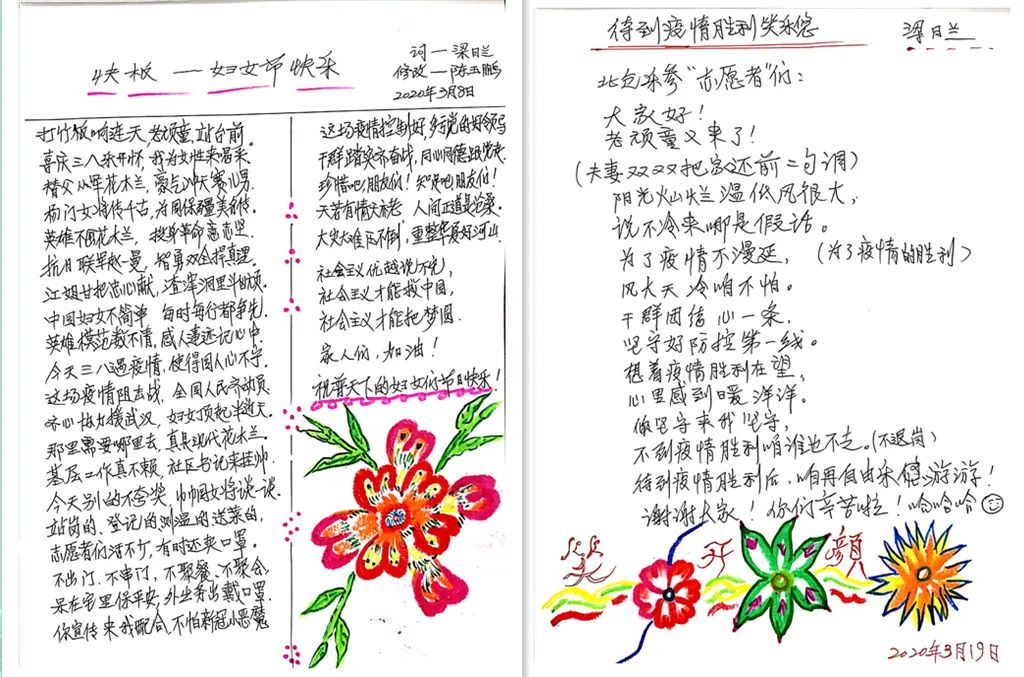 快板 — 妇女节快乐
词 — 梁日兰
修改 — 陈玉鹏
2020年3月8日
打竹板响连天,老顽童站台前.
喜庆三八乐开怀,我为女性来唱采.
替父从军花木兰,豪气冲天赛儿男.
杨门女将传千古,为国保疆美名传.
英雄不风花木兰,投身革命意志坚.
抗日联军赵一曼,智勇双全捍真理.
江姐甘把忠心献,渣滓洞里斗顽.
中国妇女不简单 每时每行都争先.
英雄模范数不清,感人事迹记心中.
今天三八遇疫情,使得国人心不宁.
这场疫情阻击战,全国人民齐动员
齐心协力援武汉,妇女顶起半边天.
那里需要哪里去,真是现代花木兰.
基层工作真不赖,社区书记来挂帅.
今天别的不夸奖,巾帼女将谈一谈.
站岗的、登记的测温的送菜的,
志愿者们活不少,有时还卖口罩.
不出门,不串门,不聚餐、不聚会
呆在宅里保平安,外业务出戴口罩.
你宣传来我配合,不怕新冠小恶魔
这场疫情控制好,多亏党的好领导
干群踏实齐奋战,同心同德跟党走.
珍惜吧!朋友们!知足吧朋友们!
天若有情天亦老 人间正道是沧桑.
大灾大难压不倒,重整华夏好河山.
社会主义优越说不完,
社会主义才能救中国,
社会主义才能把梦圆.
家人们,加油!
祝普天下的妇女们节日快乐!
待到疫情胜利笑乐悠
梁日兰
北包乐参“志愿者”们:
大家好!
老顽童又来了!
(夫妻双双把家还前二句调)
阳光灿烂温低风很大,
说不冷来哪是假话。
为了疫情不漫延,(为了疫情的胜利)
风大天冷咱不怕。
干群团结心一条,
坚守好防控第一线。
想着疫情胜利在望,
心里感到暖洋洋.
你坚守来我坚守,
不到疫情胜利咱谁也不走。(不退岗)
待到疫情胜利后,咱再自由乐悠游游!
谢谢大家!你们辛苦啦!哈哈哈
笑开颜
2020年3月19日